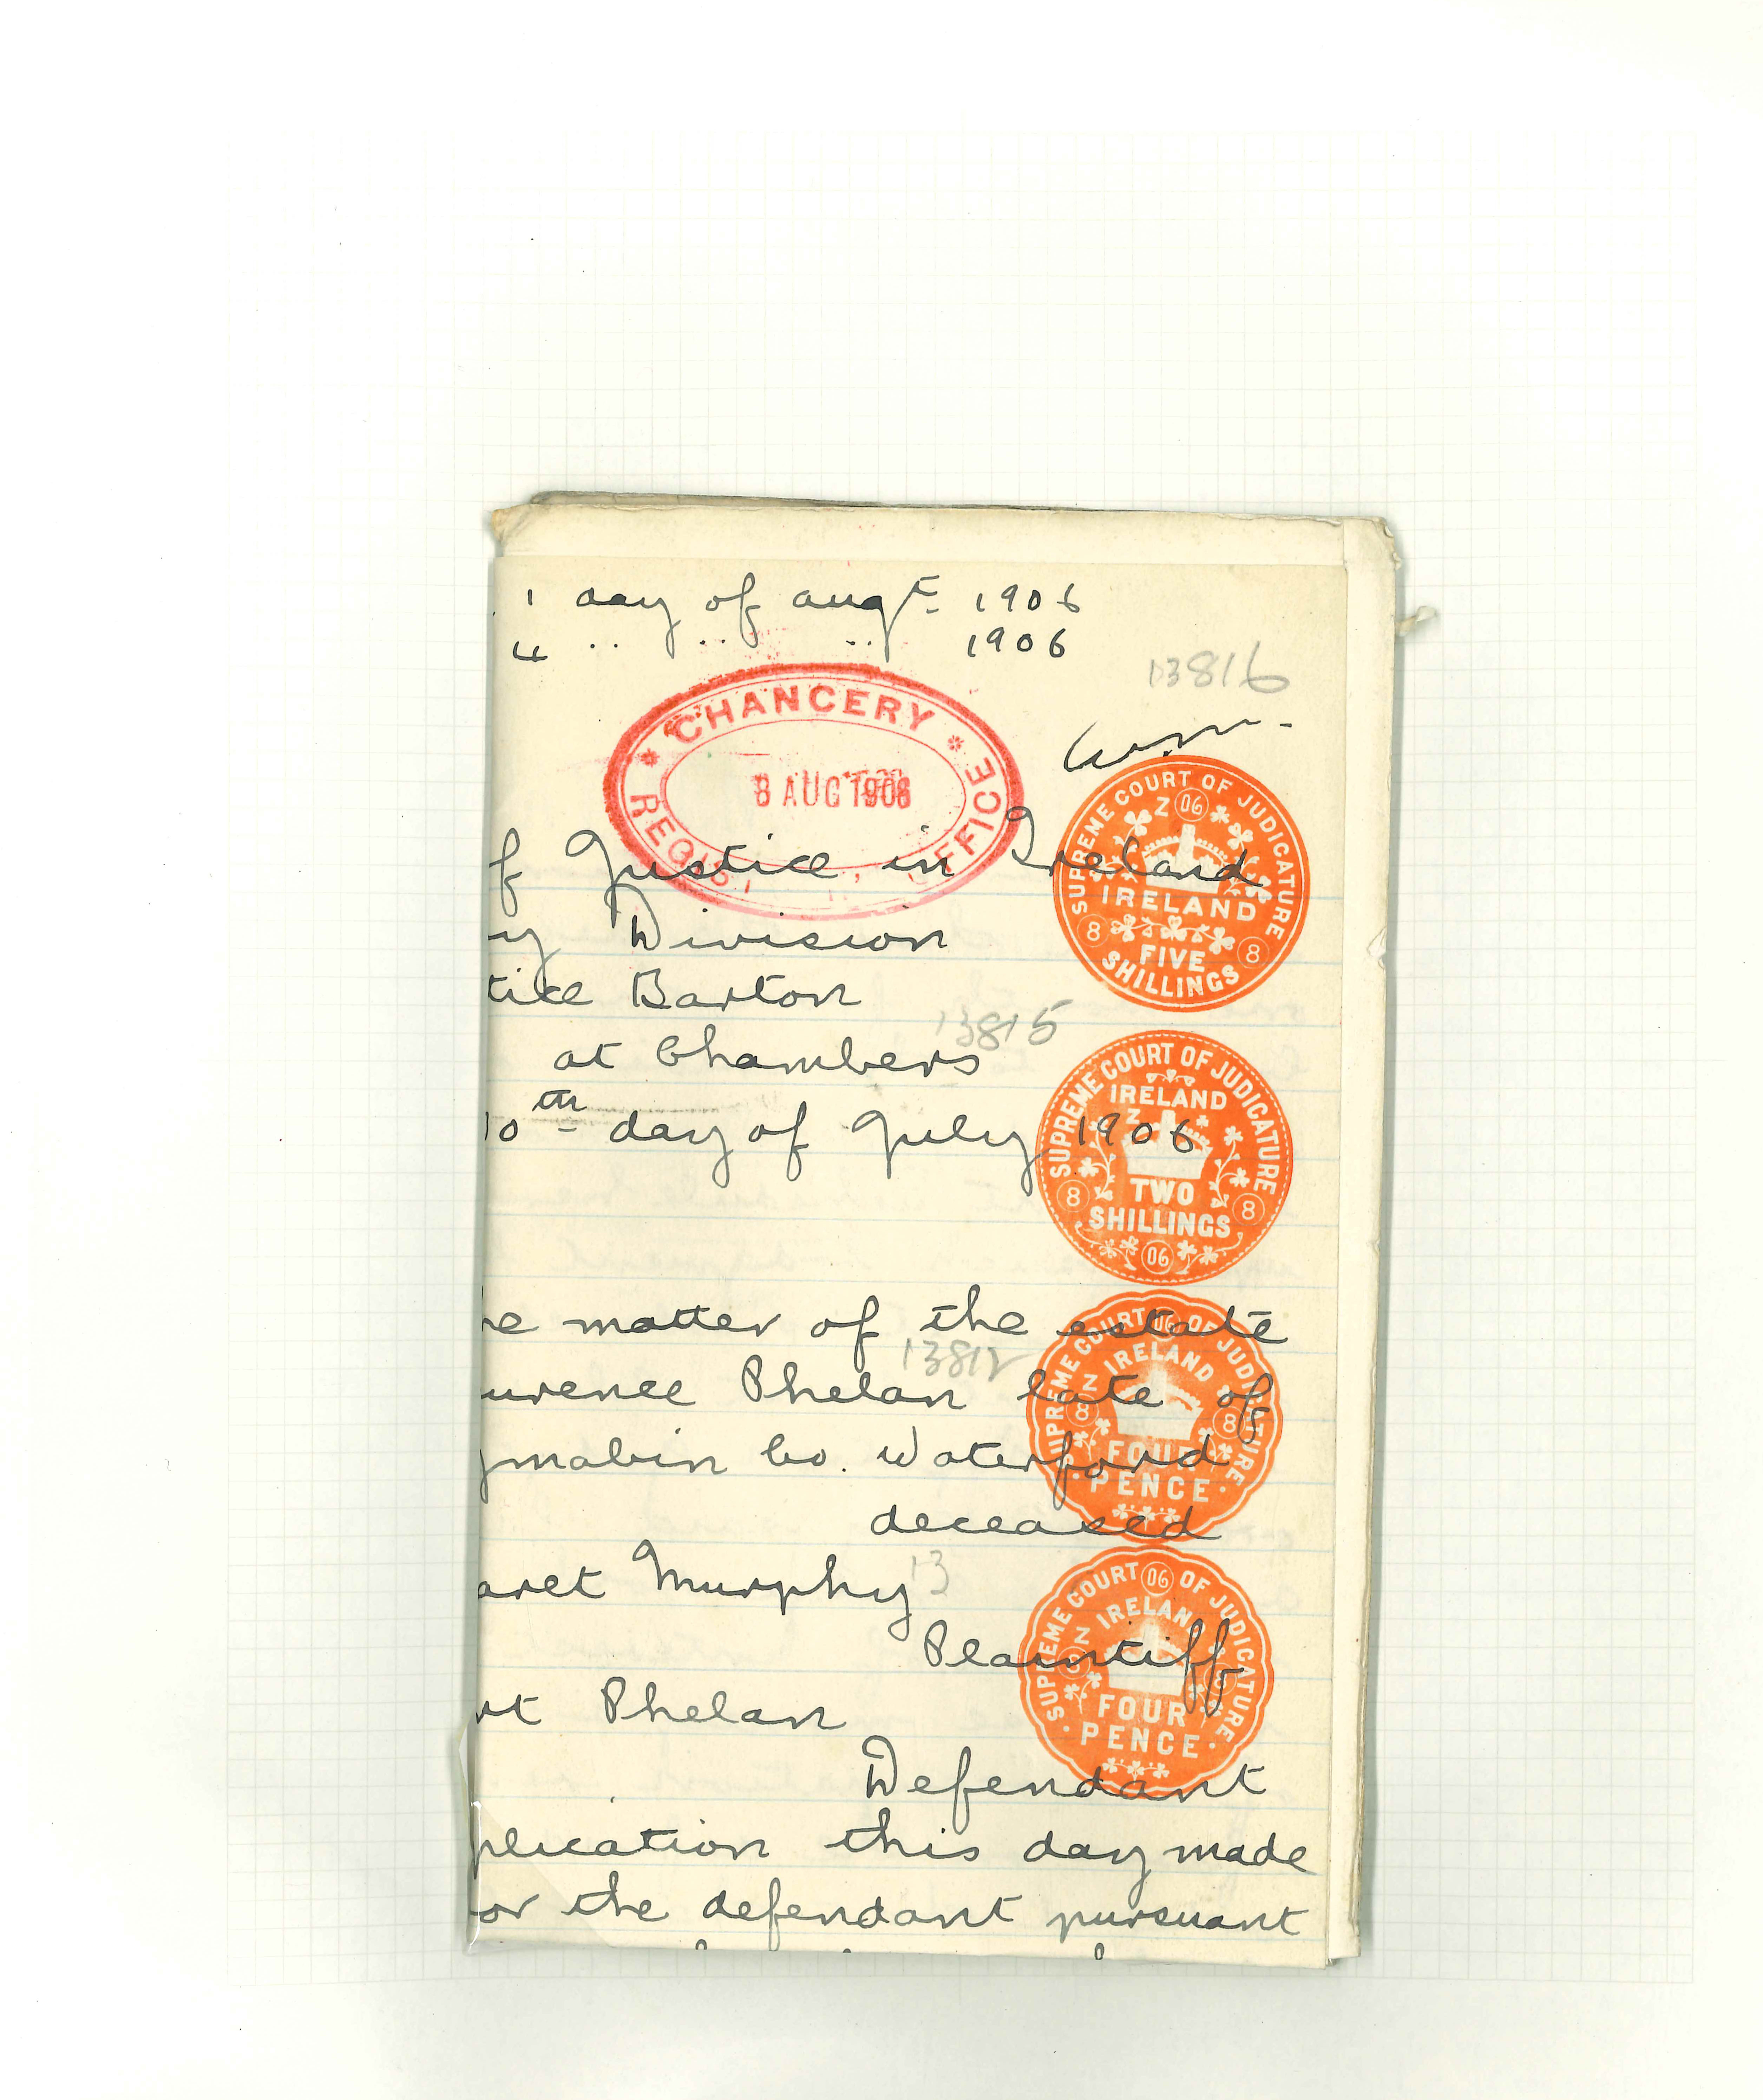 1 day of augt 1906
4 .. .. .. 1906
13816
CHANCERY
8 AUG 1906
OFFICE
f Justice in Ireland
SUPREME COURT OF JUDICATURE
Z 06
IRELAND
8 8
FIVE
SHILLINGS
y Division
tice Barton
13815
at Chambers
10th day of July 1906
SUPREME COURT OF JUDICATURE
IRELAND
Z
TWO
8 8
SHILLINGS
06
he matter of the estate
13812
urence Phelan late of
SUPREME COURT 06 OF JUDICATURE
IRELAND
Z
8 8
FOUR
PENCE
mabin Co. Waterford
deceased
aret Murphy
13
Plaintiff
SUPREME COURT 06 OF JUDICATURE
IRELAND
Z
FOUR
PENCE
rt Phelan
Defendant
plication this day made
or the defendant pursuant